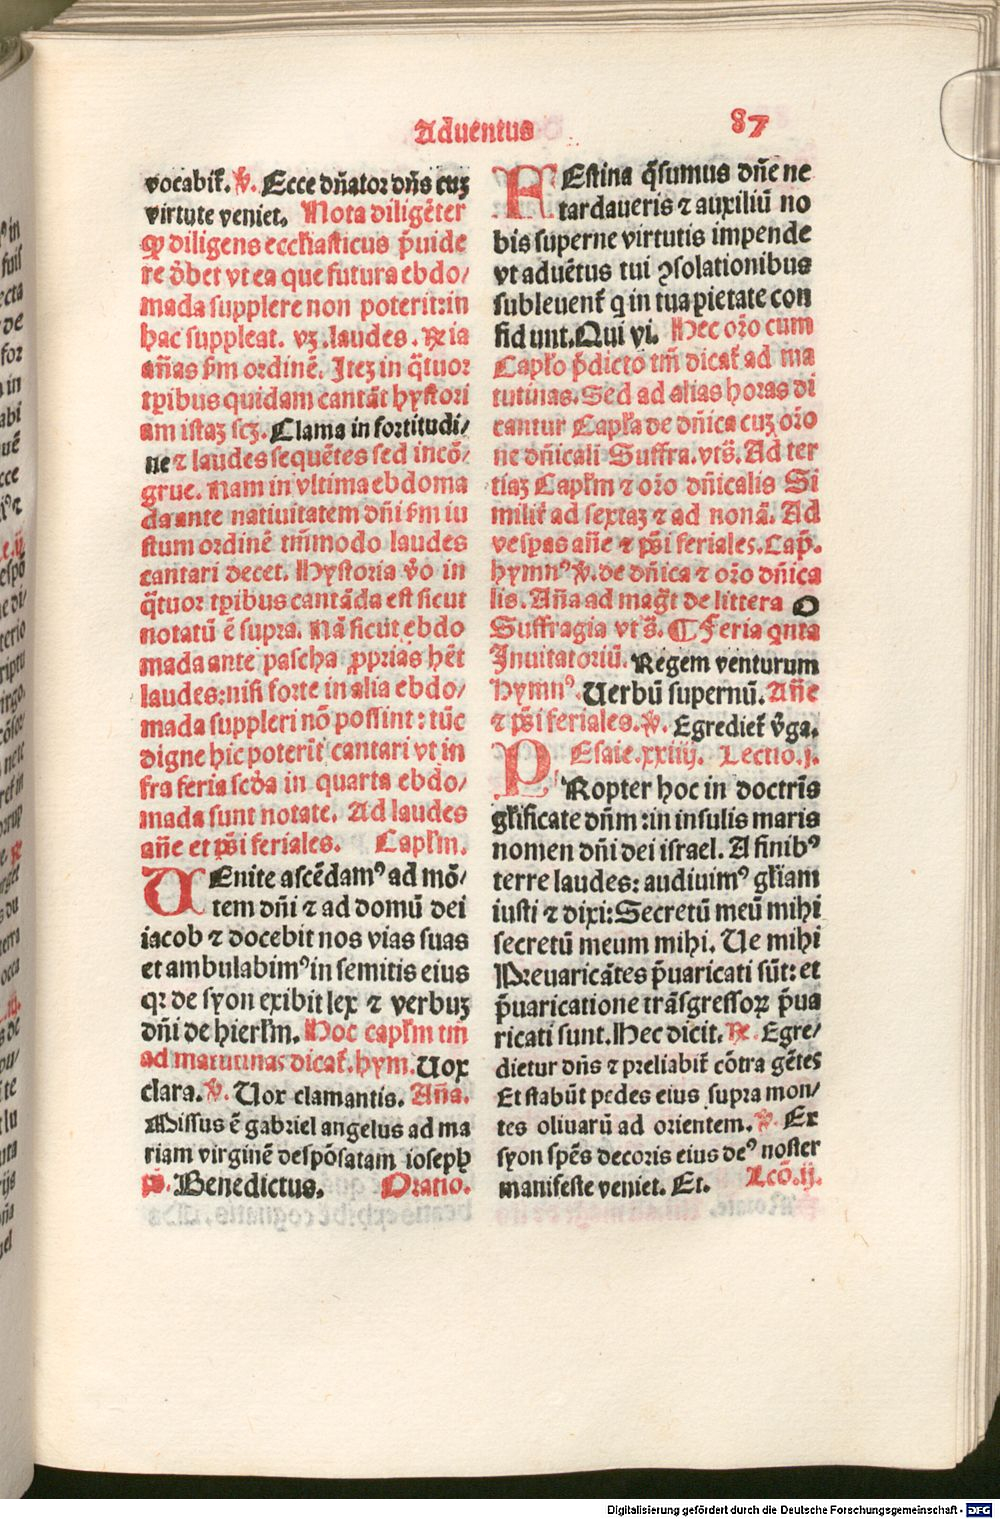 Aduentus
87
vocabit᷑. ℣. Ecce dn̄ator dn̄s cuꝫ
virtute veniet. Nota diligēter
ꝙ diligens ecclīasticus p̄uide
re dꝫbet vt ea que futura ebdo/
mada supplere non poterit: in
hac suppleat. vꝫ. laudes. ℞ ia
an̄as ẜm ordinē. Itez in q̄tuor
tꝑibus quidam cantāt hystori
am istaꝫ scꝫ. Clama in fortitudi/
ne ⁊ laudes sequētes sed incō/
grue. Nam in vltima ebdoma
da ante natiuitatem dn̄i ẜm iu
stum ordinē tm̄modo laudes
cantari decet. Hystoria v̄o in
q̄tuor tꝑibus cantāda est sicut
notatū ē supra. Nā sicut ebdo
mada ante pascha ꝓprias hēt
laudes: nisi forte in alia ebdo/
mada suppleri nō possint: tūc
digne hic poterīt cantari vt in
fra feria scd̄a in quarta ebdo/
mada sunt notate. Ad laudes
an̄e et pſ̄i feriales. Capl̄m.
VEnite ascēdamꝰ ad mō/
tem dn̄i ⁊ ad domū dei
iacob ⁊ docebit nos vias suas
et ambulabimꝰ in semitis eius
qꝛ de syon exibit lex ⁊ verbuꝫ
dn̄i de hierl̄m. Hoc capl̄m tm̄
ad matutinas dicat᷑. hym. Uox
clara. ℣. Uox clamantis. An̄a.
Missus ē gabriel angelus ad ma
riam virginē despōsatam ioseph
p̄s. Benedictus. Oratio.
FEstina q̄sumus dn̄e ne
tardaueris ⁊ auxiliū no
bis superne virtutis impende
vt aduētus tui ꝯsolationibus
subleuent᷑ q in tua pietate con
fidunt. Qui vi. Hec or̄o cum
Capl̄o p̄dicto tm̄ dicat᷑ ad ma
tutinas. Sed ad alias horas di
cantur Capl̄a de dn̄ica cuꝫ or̄o
ne dn̄icali Suffra. vts̄. Ad ter
tiaꝫ Capl̄m ⁊ or̄o dn̄icalis Si
milit᷑ ad sextaꝫ ⁊ ad nonā. Ad
vesꝑas an̄e ⁊ pſ̄i feriales. Cap̄.
hymnꝰ ℣. de dn̄ica ⁊ or̄o dn̄ica
lis. An̄a ad mag̅t de littera O
Suffragia vts̄. ¶ Feria qnta
Inuitatoriū. Regem venturum
hymnꝰ. Uerbū supernū. An̄e
⁊ pſ̄i feriales. ℣. Egrediet᷑ v̄ga.
Esaie. xxiiij. Lectio. j.
PRopter hoc in doctrīs
gl̄ificate dn̄m: in insulis maris
nomen dn̄i dei israel. A finibꝰ
terre laudes: audiuimꝰ gl̄iam
iusti ⁊ dixi: Secretū meū mihi
secretū meum mihi. Ue mihi
Preuaricātes p̄uaricati sūt: et
p̄uaricatione trāsgressoꝝ p̄ua
ricati sunt. Hec dicit. ℞. Egre/
dietur dn̄s ⁊ preliabit᷑ cōtra gētes
Et stabūt pedes eius supra mon/
tes oliuarū ad orientem. ℣. Ex
syon spēs decoris eius deꝰ noster
manifeste veniet. Et. Lcō. ij.
Digitalisierung gefördert durch die Deutsche Forschungsgemeinschaft - DFG